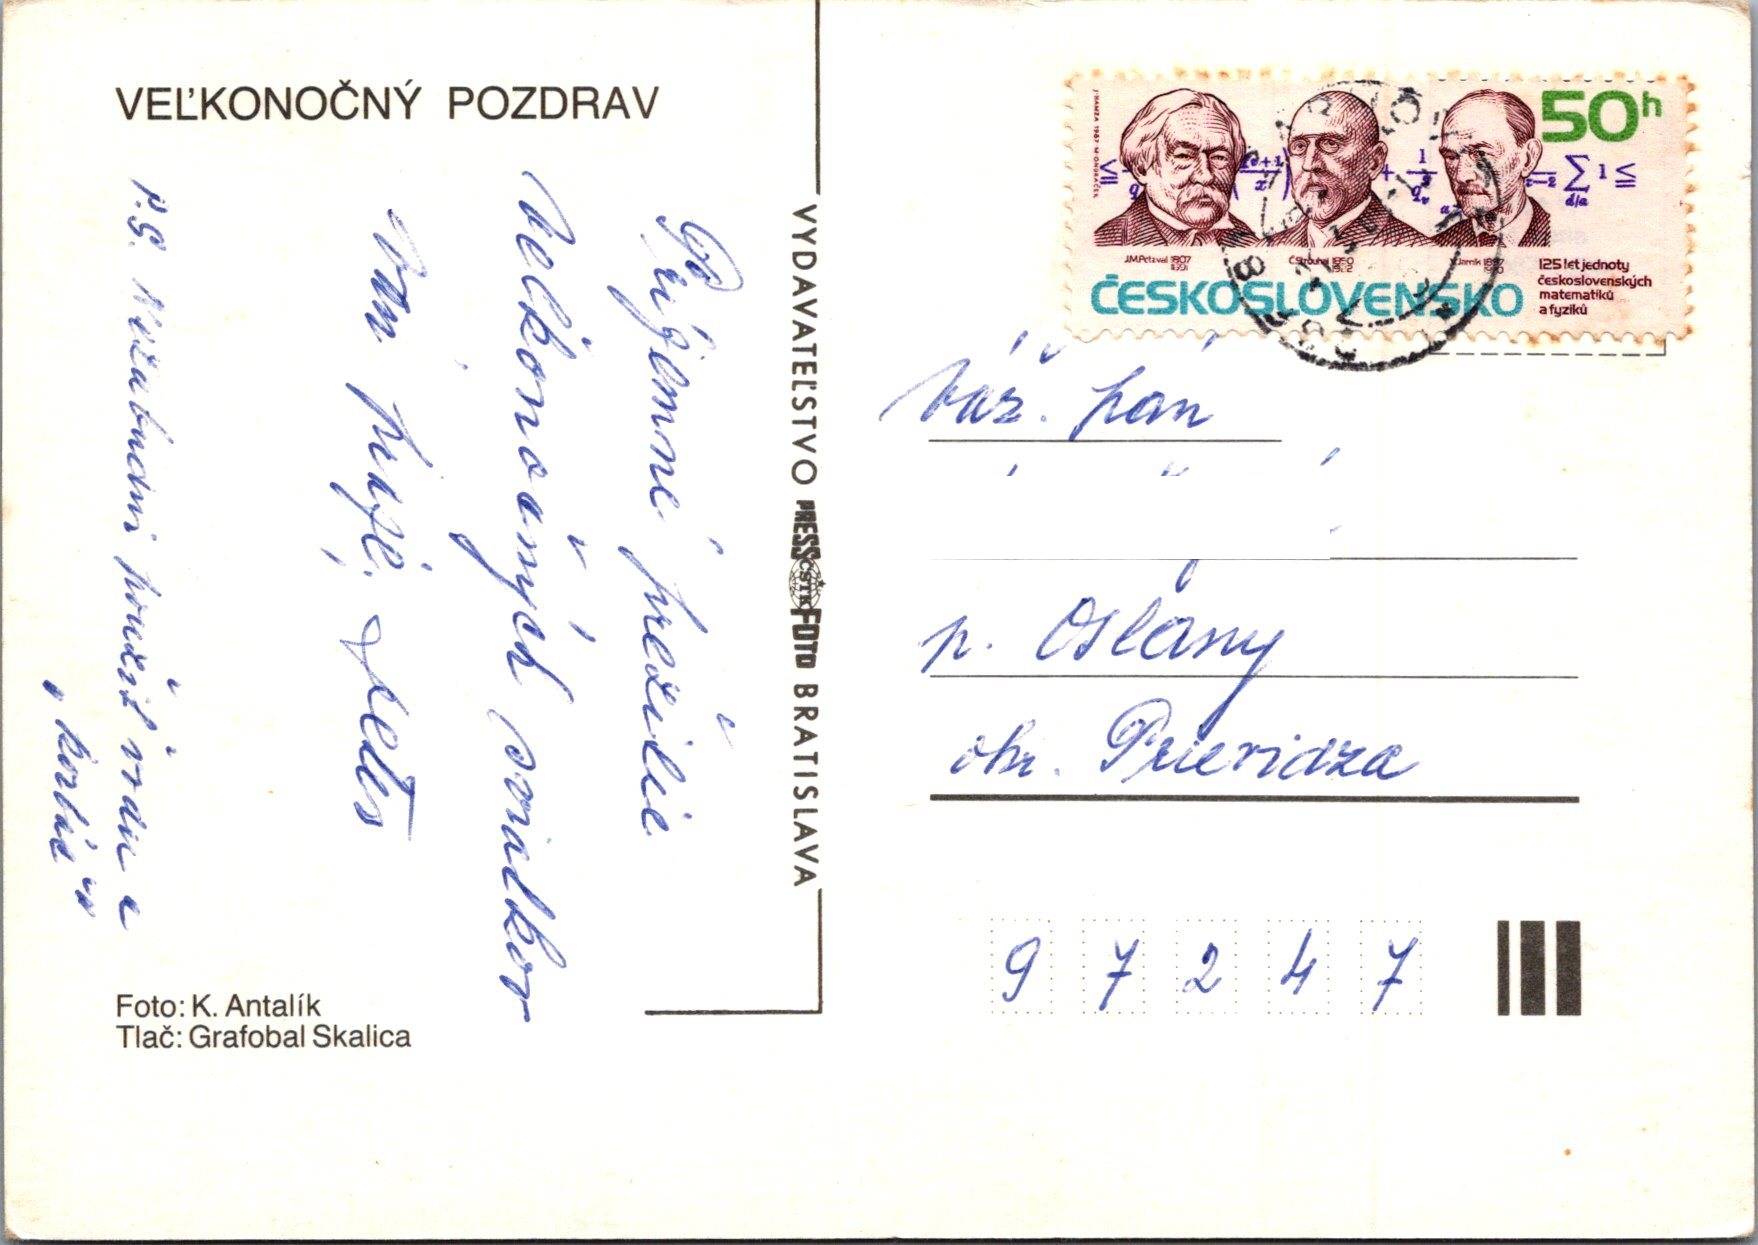 VEĽKONOČNÝ POZDRAV
Príjemné prežitie
veľkonočných sviatkov
Vám praje
P.S. Nezabudni použiť vodu a
Foto: K. Antalík
Tlač: Grafobal Skalica
VYDAVATEĽSTVO PRESSFOTO BRATISLAVA
ČSTK
50h
J. HAMZA 1987 M. ONDRÁČEK
J.M.Petzval 1807 1891
Č.Strouhal 1850 1922
V.Jarník 1897 1970
ČESKOSLOVENSKO
125 let jednoty
československých
matematiků
a fyziků
Váž. pán
p. Oslany
okr. Prievidza
9 7 2 4 7